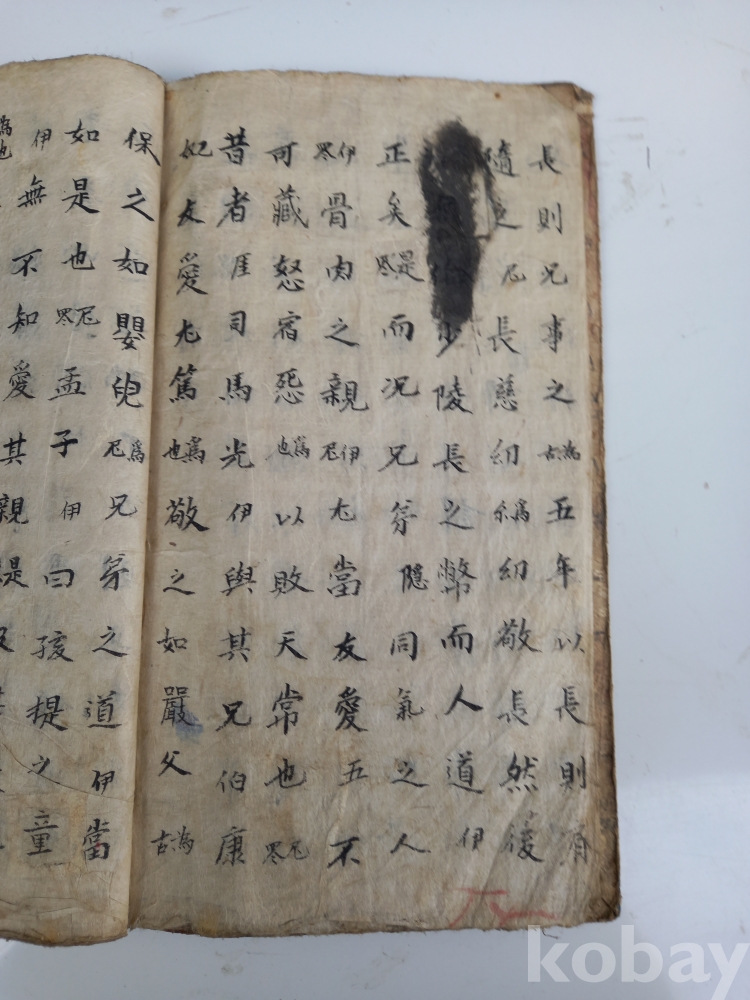 長則兄事之為古五年以長則肩
隨之尼長慈幼為㫆幼敬長然後
少陵長之弊而人道伊
正矣是罘而况兄弟隱同氣之人
伊罘骨肉之親伊尼尤當友愛五不
可藏怒宿怨為也以敗天常也尼罘
昔者厓司馬光伊與其兄伯康
妃友愛尤篤為也敬之如嚴父為古
保之如嬰兒為尼兄弟之道伊當
如是也尼罘孟子伊曰孩提之童
伊無不知愛其親
為也
kobay